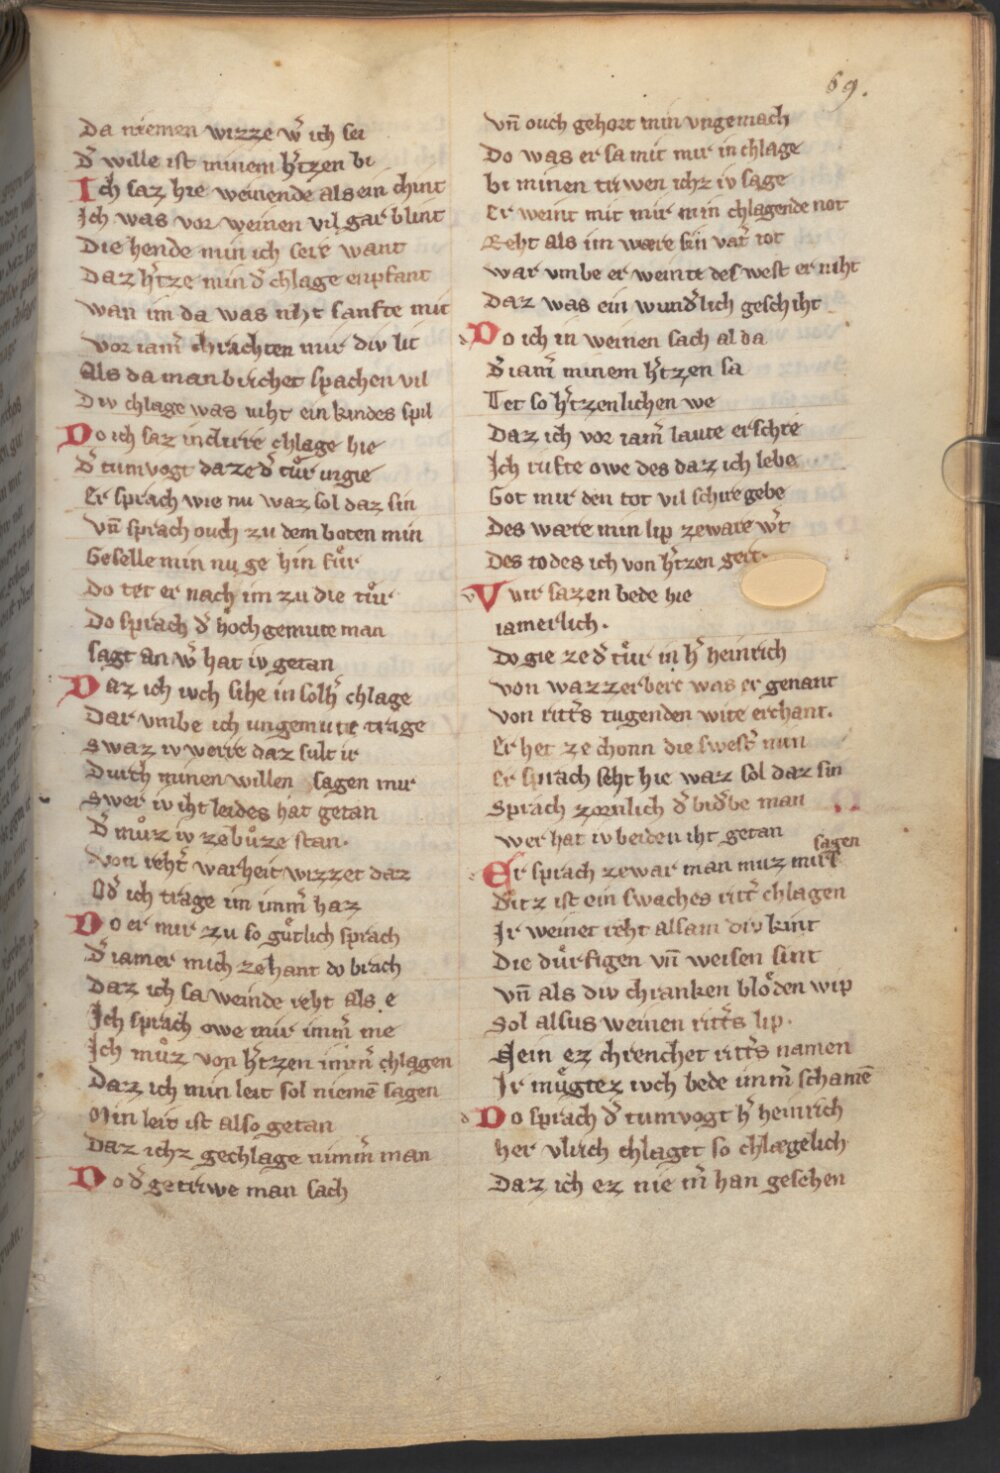 69.
Da niemen wizze w̄ ich sei
D̾ wille ist minem h̾tzen bi
Ich saz hie weinende als ein chint
Ich was vor weinen vil gar blint
Die hende min ich sere want
Daz h̾tze min d̾ chlage enpfant
wan im da was niht sanfte mit
vor iam̾ chrachten mir div lit
Als da man brichet spachen vil
Div chlage was niht ein kindes spil
Do ich saz in dirre chlage hie
D̾ tumvogt da ze d̾ tuͦr in gie
Er sprach wie nu waz sol daz sin
Vn̄ sprach ouch zu dem boten min
Geselle min nu ge hin fuͤr
Do tet er nach im zu die tuͤr
Do sprach d̾ hochgemute man
sagt an w̾ hat iv getan
Daz ich iuch sihe in solh̾ chlage
Dar vmbe ich ungemute trage
Swaz iv werre daz sult ir
Durch minen willen sagen mir
Swer iv iht leides hat getan
D̾ muͦz iv ze buͦze stan.
Von reht̾ warheit wizzet daz
Od̾ ich trage im imm̾ haz
Do er mir zu so guͤtlich sprach
D̾ iamer mich zehant do brach
Daz ich sa weinde reht als .e
Ich sprach owe mir imm̾ me
Ich muͦz von h̾tzen imm̾ chlagen
Daz ich min leit sol niemē sagen
Min leit ist also getan
Daz ichz gechlage nimm̾ man
Do d̾ getriwe man sach
Vn̄ ouch gehort min vngemach
Do was er sa mit mir in chlage
bi minen triwen ichz iv sage
Er weint mit mir min chlagende not
Reht als im wære sin vat̾ tot
war vmbe er weinte des west er niht
Daz was ein wund̾lich geschiht
Do ich in weinen sach al da
D̾ iam̾ minem h̾tzen sa
Tet so h̾tzenlichen we
Daz ich vor iam̾ laute erschre
Ich rufte owe des daz ich lebe
Got mir den tot vil schire gebe
Des wære min lip zeware w̾t
Des todes ich von h̾tzen gert.
Wir sazen bede hie
iamerlich.
Do gie ze d̾ tuͤr in h̾ heinrich
von wazzerberc was er genant
Von ritt̾s tugenden wite erchant.
Er het ze chonn die swest̾ min
Er sprach seht hie waz sol daz sin
Sprach zornlich d̾ bid̾be man
wer hat iv beiden iht getan
Er sprach zewar man muz mir sagen
Ditz ist ein swaches ritt̾ chlagen
Ir weinet reht alsam div kint
Die duͤrftigen vn̄ weisen sint
Vn̄ als div chranken bloͤden wip
Sol alsus weinen ritt̾s lip.
Nein ez chrenchet ritt̾s namen
Ir muͤgtez iuch bede imm̾ schamē
Do sprach d̾ tumvogt h̾ heinrich
her vlrich chlaget so chlægelich
Daz ich ez nie m̾ han gesehen